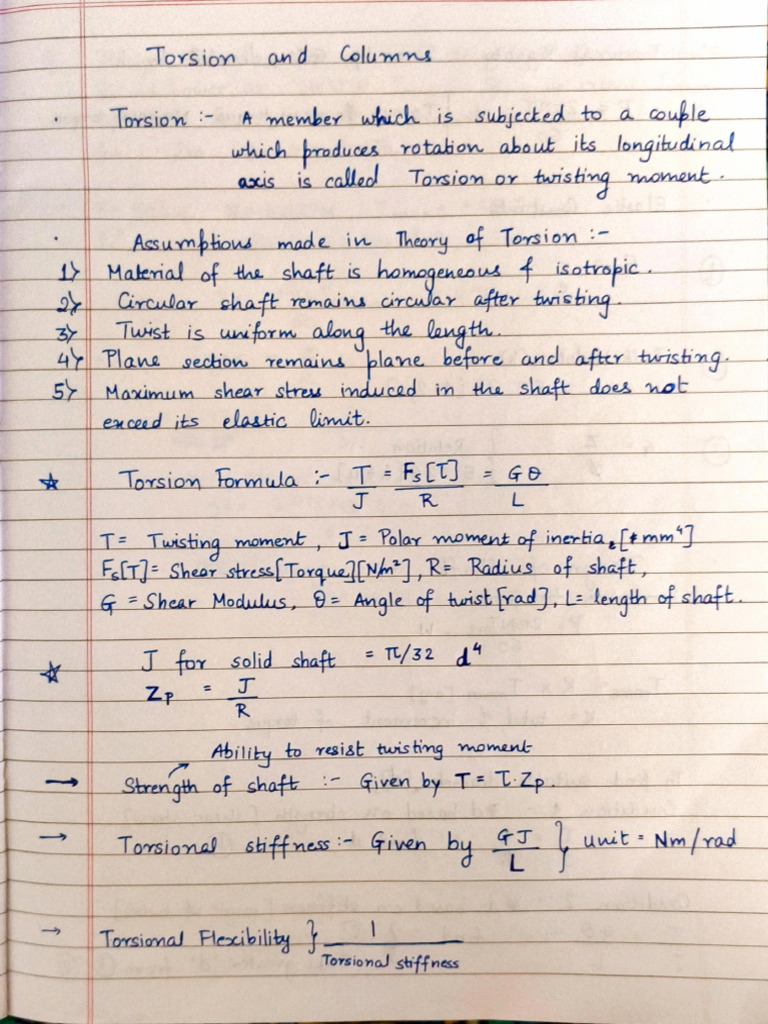 Torsion and Columns
· Torsion :- A member which is subjected to a couple
which produces rotation about its longitudinal
axis is called Torsion or twisting moment.
· Assumptions made in Theory of Torsion :-
1) Material of the shaft is homogeneous & isotropic.
2) Circular shaft remains circular after twisting.
3) Twist is uniform along the length.
4) Plane section remains plane before and after twisting.
5) Maximum shear stress induced in the shaft does not
exceed its elastic limit.
☆ Torsion Formula :- T/J = Fs[τ]/R = Gθ/L
T = Twisting moment, J = Polar moment of inertia, [mm⁴]
Fs[τ] = Shear stress [Torque][N/m²], R = Radius of shaft,
G = Shear Modulus, θ = Angle of twist [rad], L = length of shaft.
☆ J for solid shaft = π/32 d⁴
Zp = J/R
Ability to resist twisting moment
→ Strength of shaft :- Given by T = τ·Zp.
→ Torsional stiffness :- Given by GJ/L } unit = Nm/rad
→ Torsional Flexibility } 1/Torsional stiffness